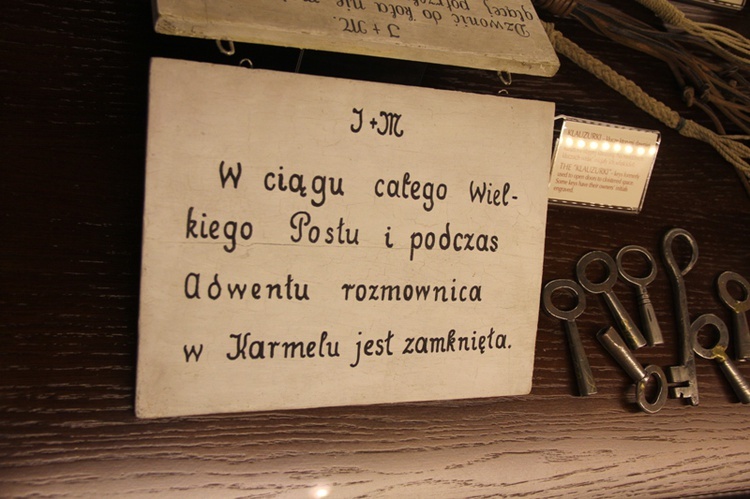 Dzwonić do koła nie
J + M.
J + M
W ciągu całego Wiel-
kiego Postu i podczas
Adwentu rozmownica
w Karmelu jest zamknięta.
"KLAUZURKI"
THE "KLAUZURKI" - keys formerly
used to open doors in cloistered space.
Some keys have their owners' initials
engraved